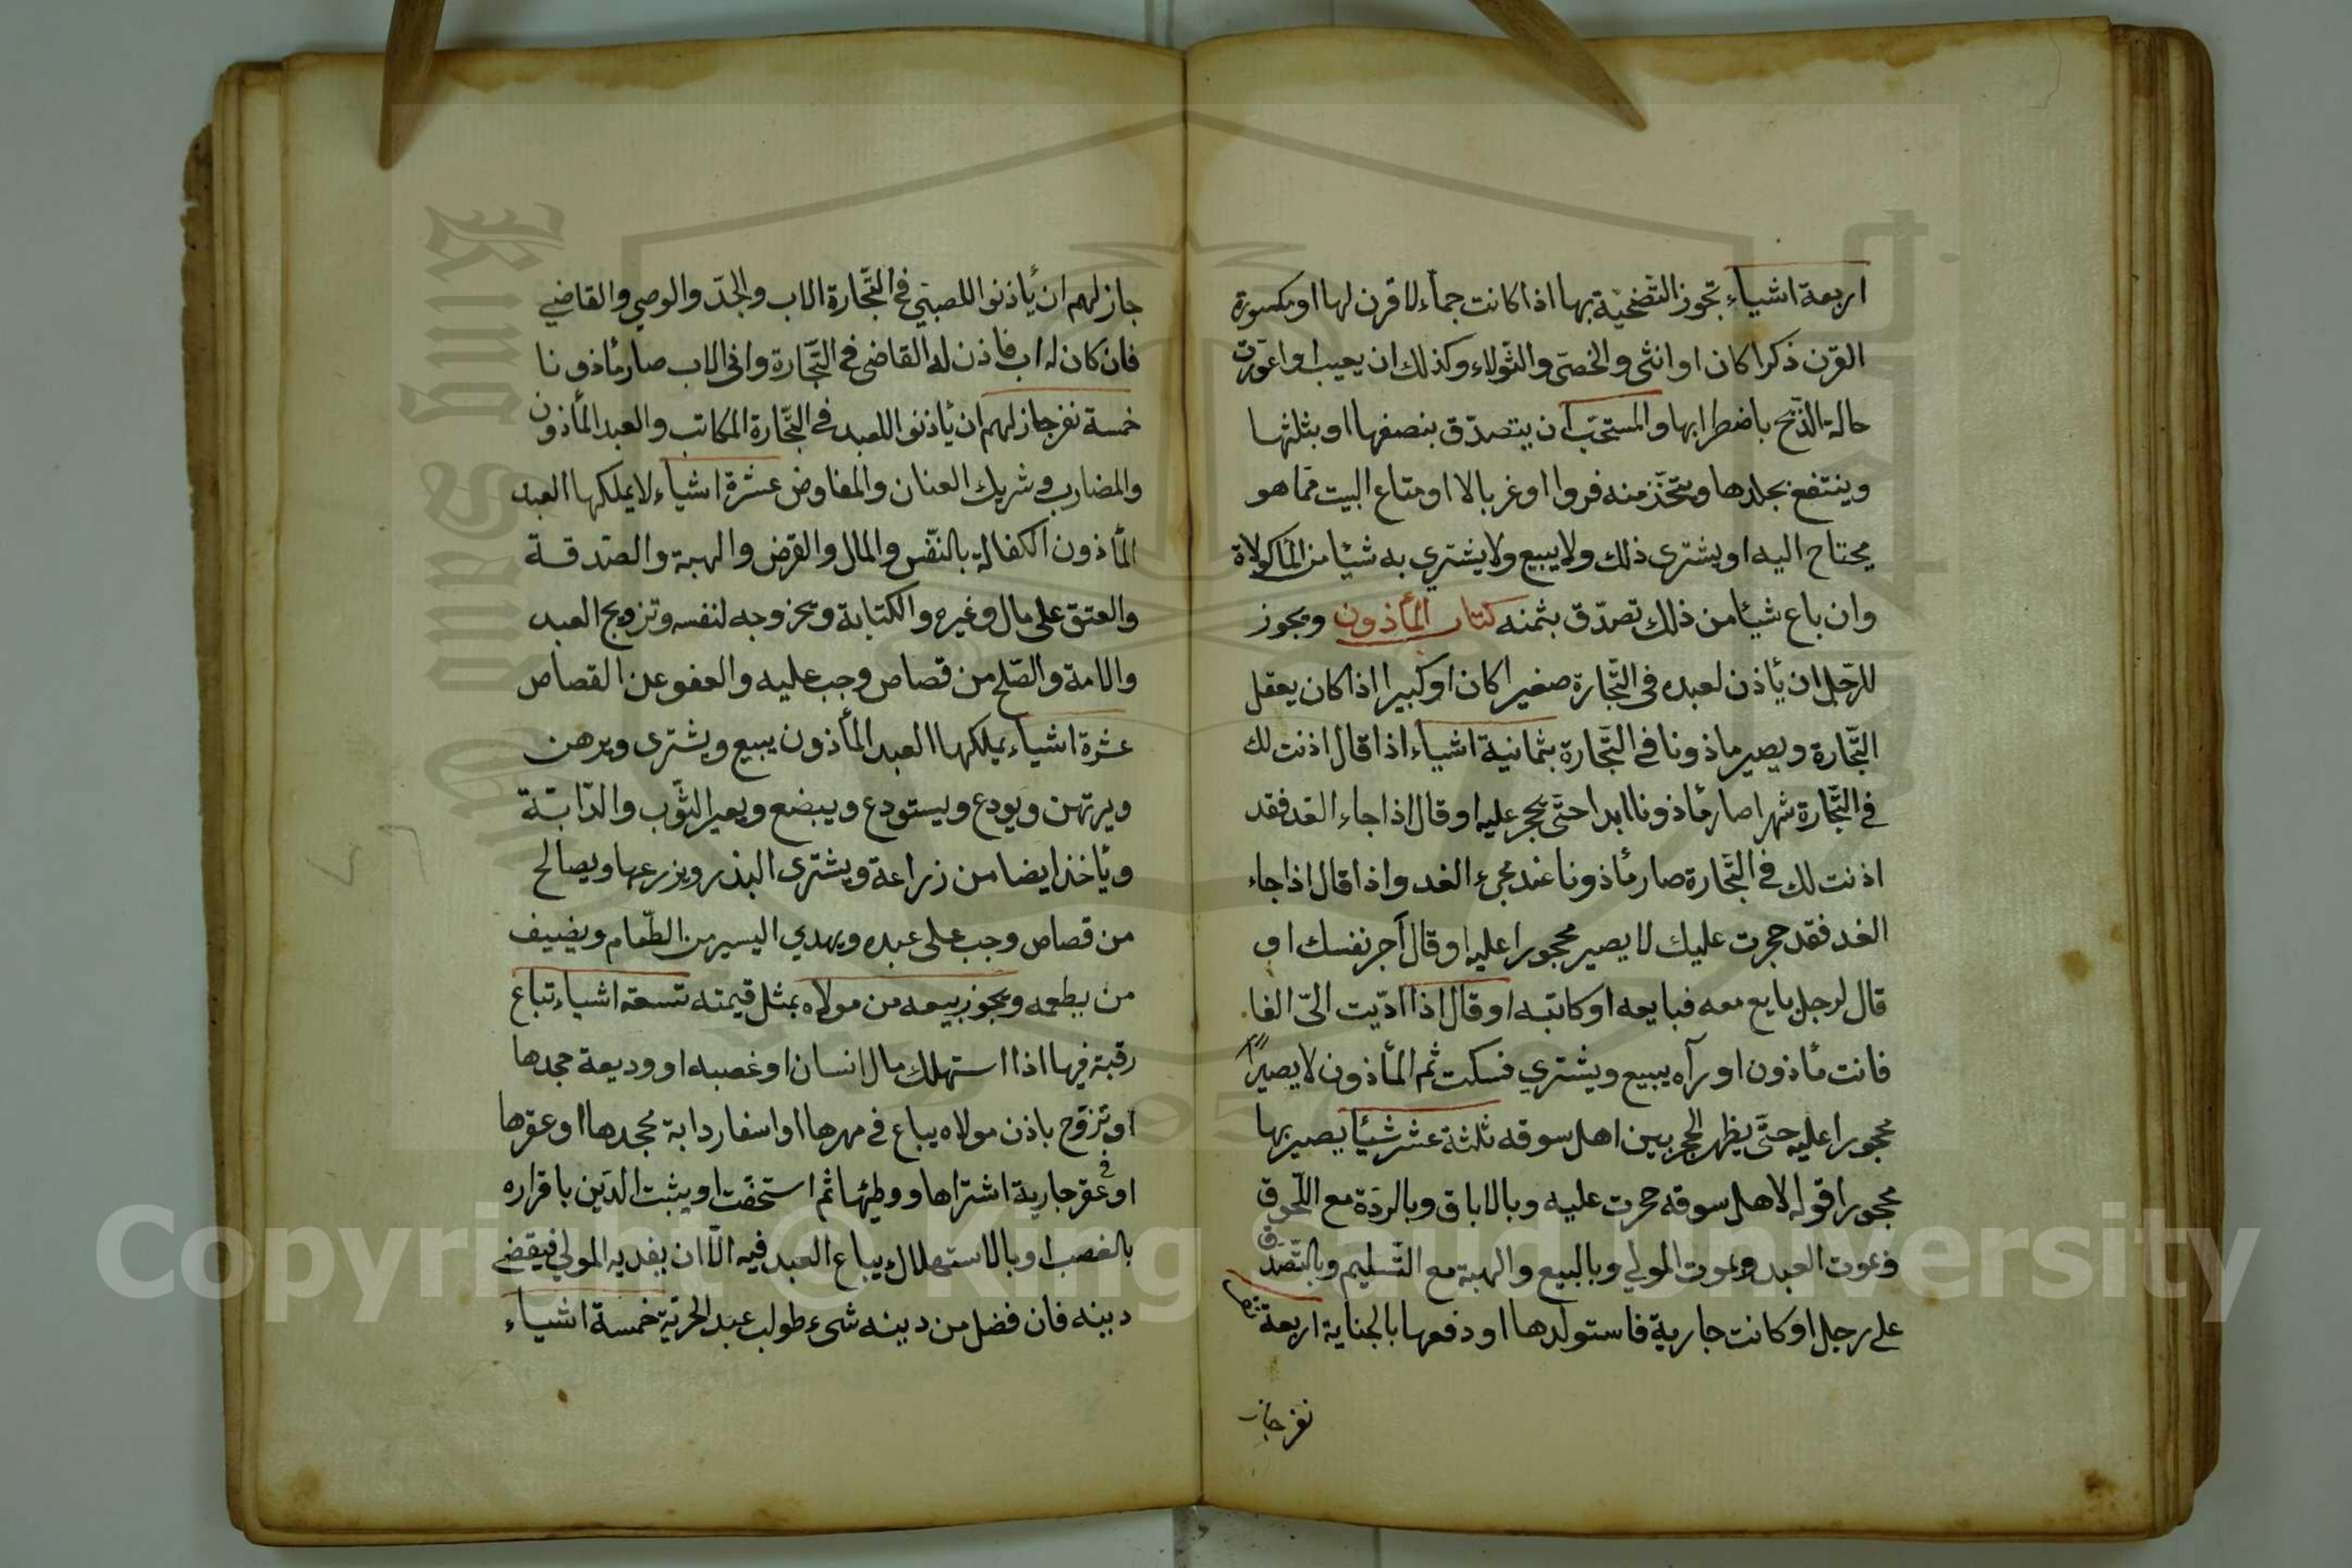 اربعة اشياء تجوز التضحية بها اذا كانت جمآء لا قرن لها او مكسورة
القرن ذكرا كان او انثى والخصىّ والثولاء وكذلك ان يعيب او اعورّت
حالة الذّبح باضطرابها والمستحبّ ان يتصدّق بنصفها او بثلثها
وينتفع بجلدها ويتّخذ منه فروا او غربالا او متاع البيت ممّا هو
يحتاج اليه او يشترى ذلك ولا يبيع ولا يشتري به شيئا من المأكولاة
وان باع شيئا من ذلك تصدّق بثمنه كتاب المأذون ويجوز
للرّجل ان يأذن لعبده فى التّجارة صغيرا كان او كبيرا اذا كان يعقل
التّجارة ويصير ماذونا فى التّجارة بثمانية اشياء اذا قال اذنت لك
فى التّجارة شهرا صار مأذونا ابدا حتّى يحجر عليه او قال اذا جاء الغد فقد
اذنت لك فى التّجارة صار مأذونا عند مجىء الغد واذا قال اذا جاء
الغد فقد حجرت عليك لا يصير محجورا عليه او قال آجر نفسك او
قال لرجل بايع معه فبايعه او كاتبه او قال اذا ادّيت الىّ الفا
فانت مأذون او رآه يبيع ويشتري فسكت ثم المأذون لا يصير
محجورا عليه حتّى يظهر الحجر بين اهل سوقه ثلثة عشر شيئا يصير بها
محجورا قوله لاهل سوقه حجرت عليه وبالاباق وبالردّة مع اللّحوق
وبموت العبد وبموت المولي وبالبيع والهبة مع التّسليم وبالتّصدّق
على رجل او كانت جارية فاستولدها او دفعها بالجناية اربعة
نفر جاز
جاز لهم ان يأذنوا للصبىّ فى التّجارة الاب والجدّ والوصي والقاضي
فان كان له اب فاذن له القاضى فى التّجارة وابى الاب صار مأذونا
خمسة نفر جاز لهم ان يأذنوا للعبد فى التّجارة المكاتب والعبد المأذون
والمضارب وشريك العنان والمفاوض عشرة اشياء لا يملكها العبد
المأذون الكفالة بالنّفس والمال والقرض والهبة والصدقة
والعتق على مال وغيره والكتابة وتخزوجه لنفسه وتزويج العبد
والامة والصّلح من قصاص وجب عليه والعفو عن القصاص
عشرة اشياء يملكها العبد المأذون يبيع ويشترى ويرهن
ويرتهن ويودع ويستودع ويبضع ويعير الثّوب والدّابّة
ويأخذ ايضا من زراعة ويشترى البذر ويزرعها ويصالح
من قصاص وجب على عبده ويهدي اليسير من الطّعام ويضيف
من يطعمه ويجوز بيعه من مولاه بمثل قيمته تسعة اشياء تباع
رقبة فيها اذا استهلك مال انسان او غصبه او وديعة جحدها
او تزوّج باذن مولاه يباع فى مهرها او اسفار دابة يجحدها او عقرها
او فى عقر جارية اشتراها ووطئها ثم استحقّت او يثبت الدّين باقراره
بالغصب او بالاستهلاك يباع العبد فيه الّا ان يفديه المولي فيقضى
دينه فان فضل من دينه شىء طولب عبد الحريّة خمسة اشياء